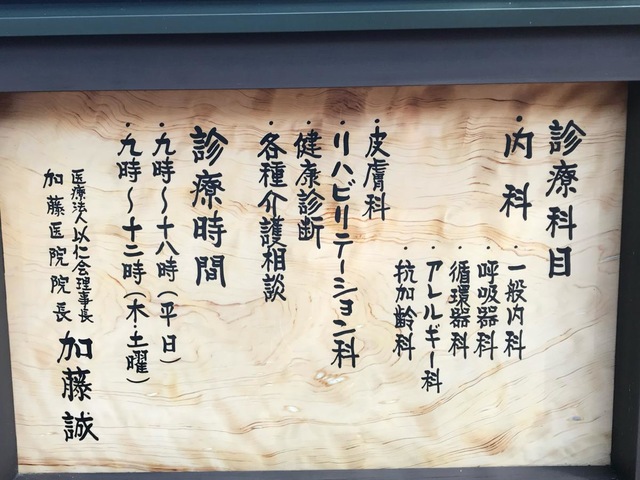 診療科目
・内科
・一般内科
・呼吸器科
・循環器科
・アレルギー科
・抗加齢科
・皮膚科
・リハビリテーション科
・健康診断
・各種介護相談
診療時間
・九時～十八時(平日)
・九時～十二時(木・土曜)
医療法人以仁会理事長
加藤医院院長
加藤誠